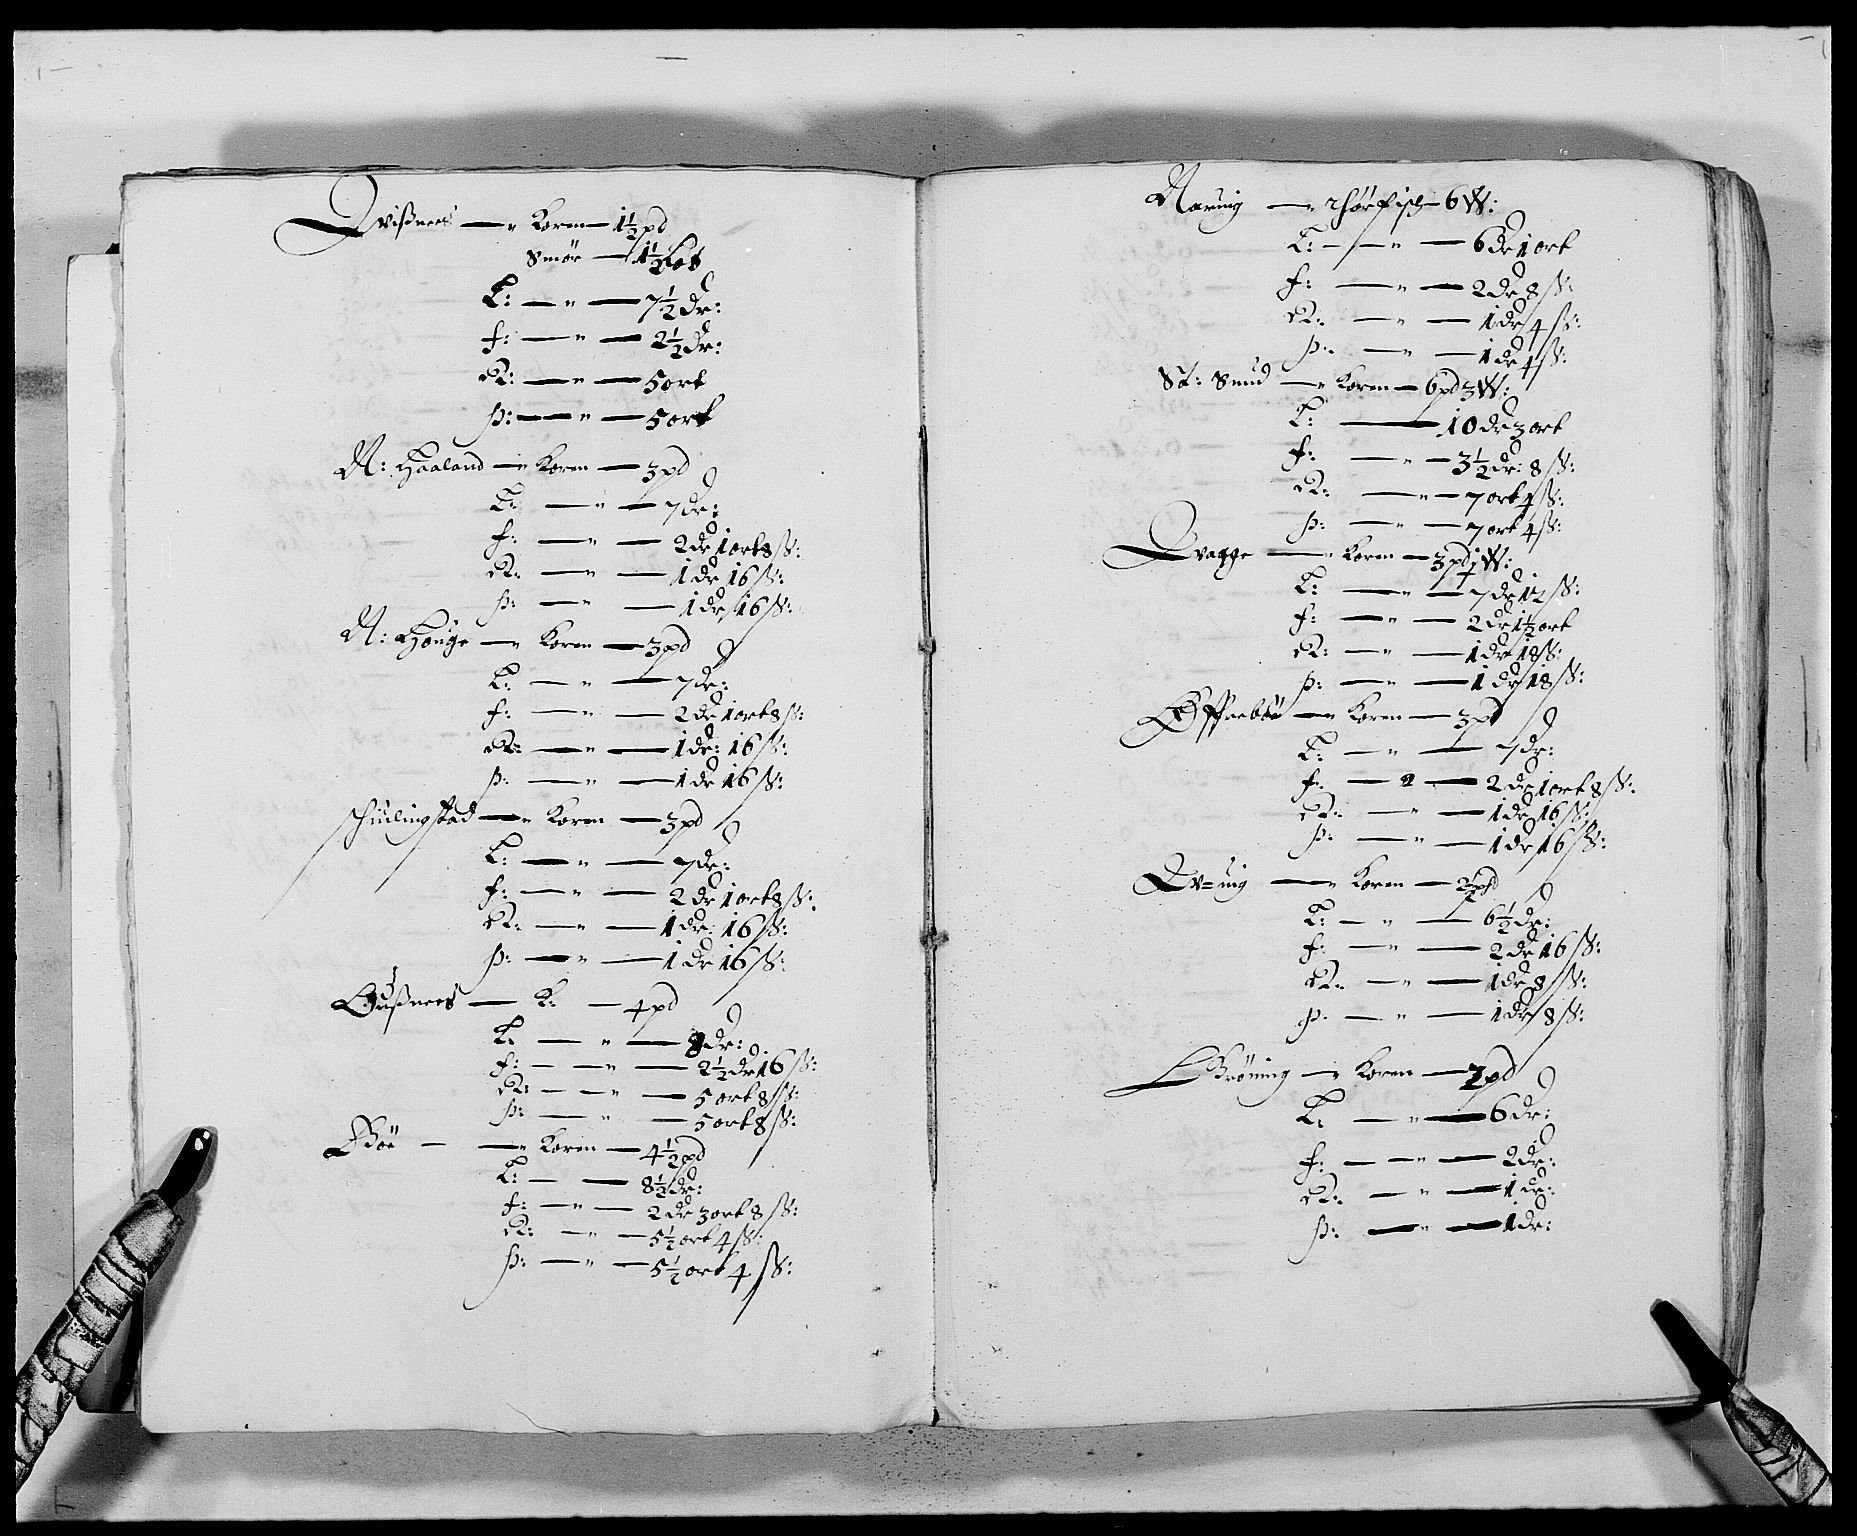 Qvißnees — Koren — 1½ pd
Smør — 1½ Lot
L: — 7½ dr:
f: — 2½ dr:
R: — 5 ort
p: — 5 ort
N: Haaland — Koren — 3 pd
L: — 7 dr:
f: — 2 dr 1 ort 8 ß:
R: — 1 dr 16 ß:
p: — 1 dr 16 ß:
N: Houge — Koren — 3 pd
L: — 7 dr:
f: — 2 dr 1 ort 8 ß:
R: — 1 dr: 16 ß:
p: — 1 dr 16 ß:
schiulingstad — Koren — 3 pd
L: — 7 dr:
f: — 2 dr 1 ort 8 ß:
R: — 1 dr: 16 ß:
p: — 1 dr 16 ß:
Gußnees — K: — 4 pd
L: — 8 dr:
f: — 2½ dr 16 ß:
R: — 5 ort 8 ß:
p: — 5 ort 8 ß:
Bøe — Koren — 4½ pd
L: — 8½ dr:
f: — 2 dr 3 ort 8 ß:
R: — 5½ ort 4 ß:
p: — 5½ ort 4 ß:
Næruig — thørfisch — 6 W:
L: — 6 dr 1 ort
f: — 2 dr 8 ß:
R: — 1 dr 4 ß:
p: — 1 dr 4 ß:
St: Sund — Koren — 6 pd 3 W:
L: — 10 dr 3 ort
f: — 3½ dr: 8 ß:
R: — 7 ort 4 ß:
p: — 7 ort 4 ß:
Qvagge — Koren — 3 pd 1 W:
L: — 7 dr 12 ß:
f: — 2 dr 1½ ort
R: — 1 dr 18 ß:
p: — 1 dr 18 ß:
Øffrebøe — Koren — 3 pd
L: — 7 dr:
f: — 2 dr 1 ort 8 ß:
R: — 1 dr 16 ß:
p: — 1 dr 16 ß:
Koren — 2½ pd
L: — 6½ dr:
f: — 2 dr 16 ß:
R: — 1 dr 8 ß:
p: — 1 dr 8 ß:
Brøning — Koren — 2 pd
L: — 6 dr:
f: — 2 dr:
R: — 1 dr:
p: — 1 dr: